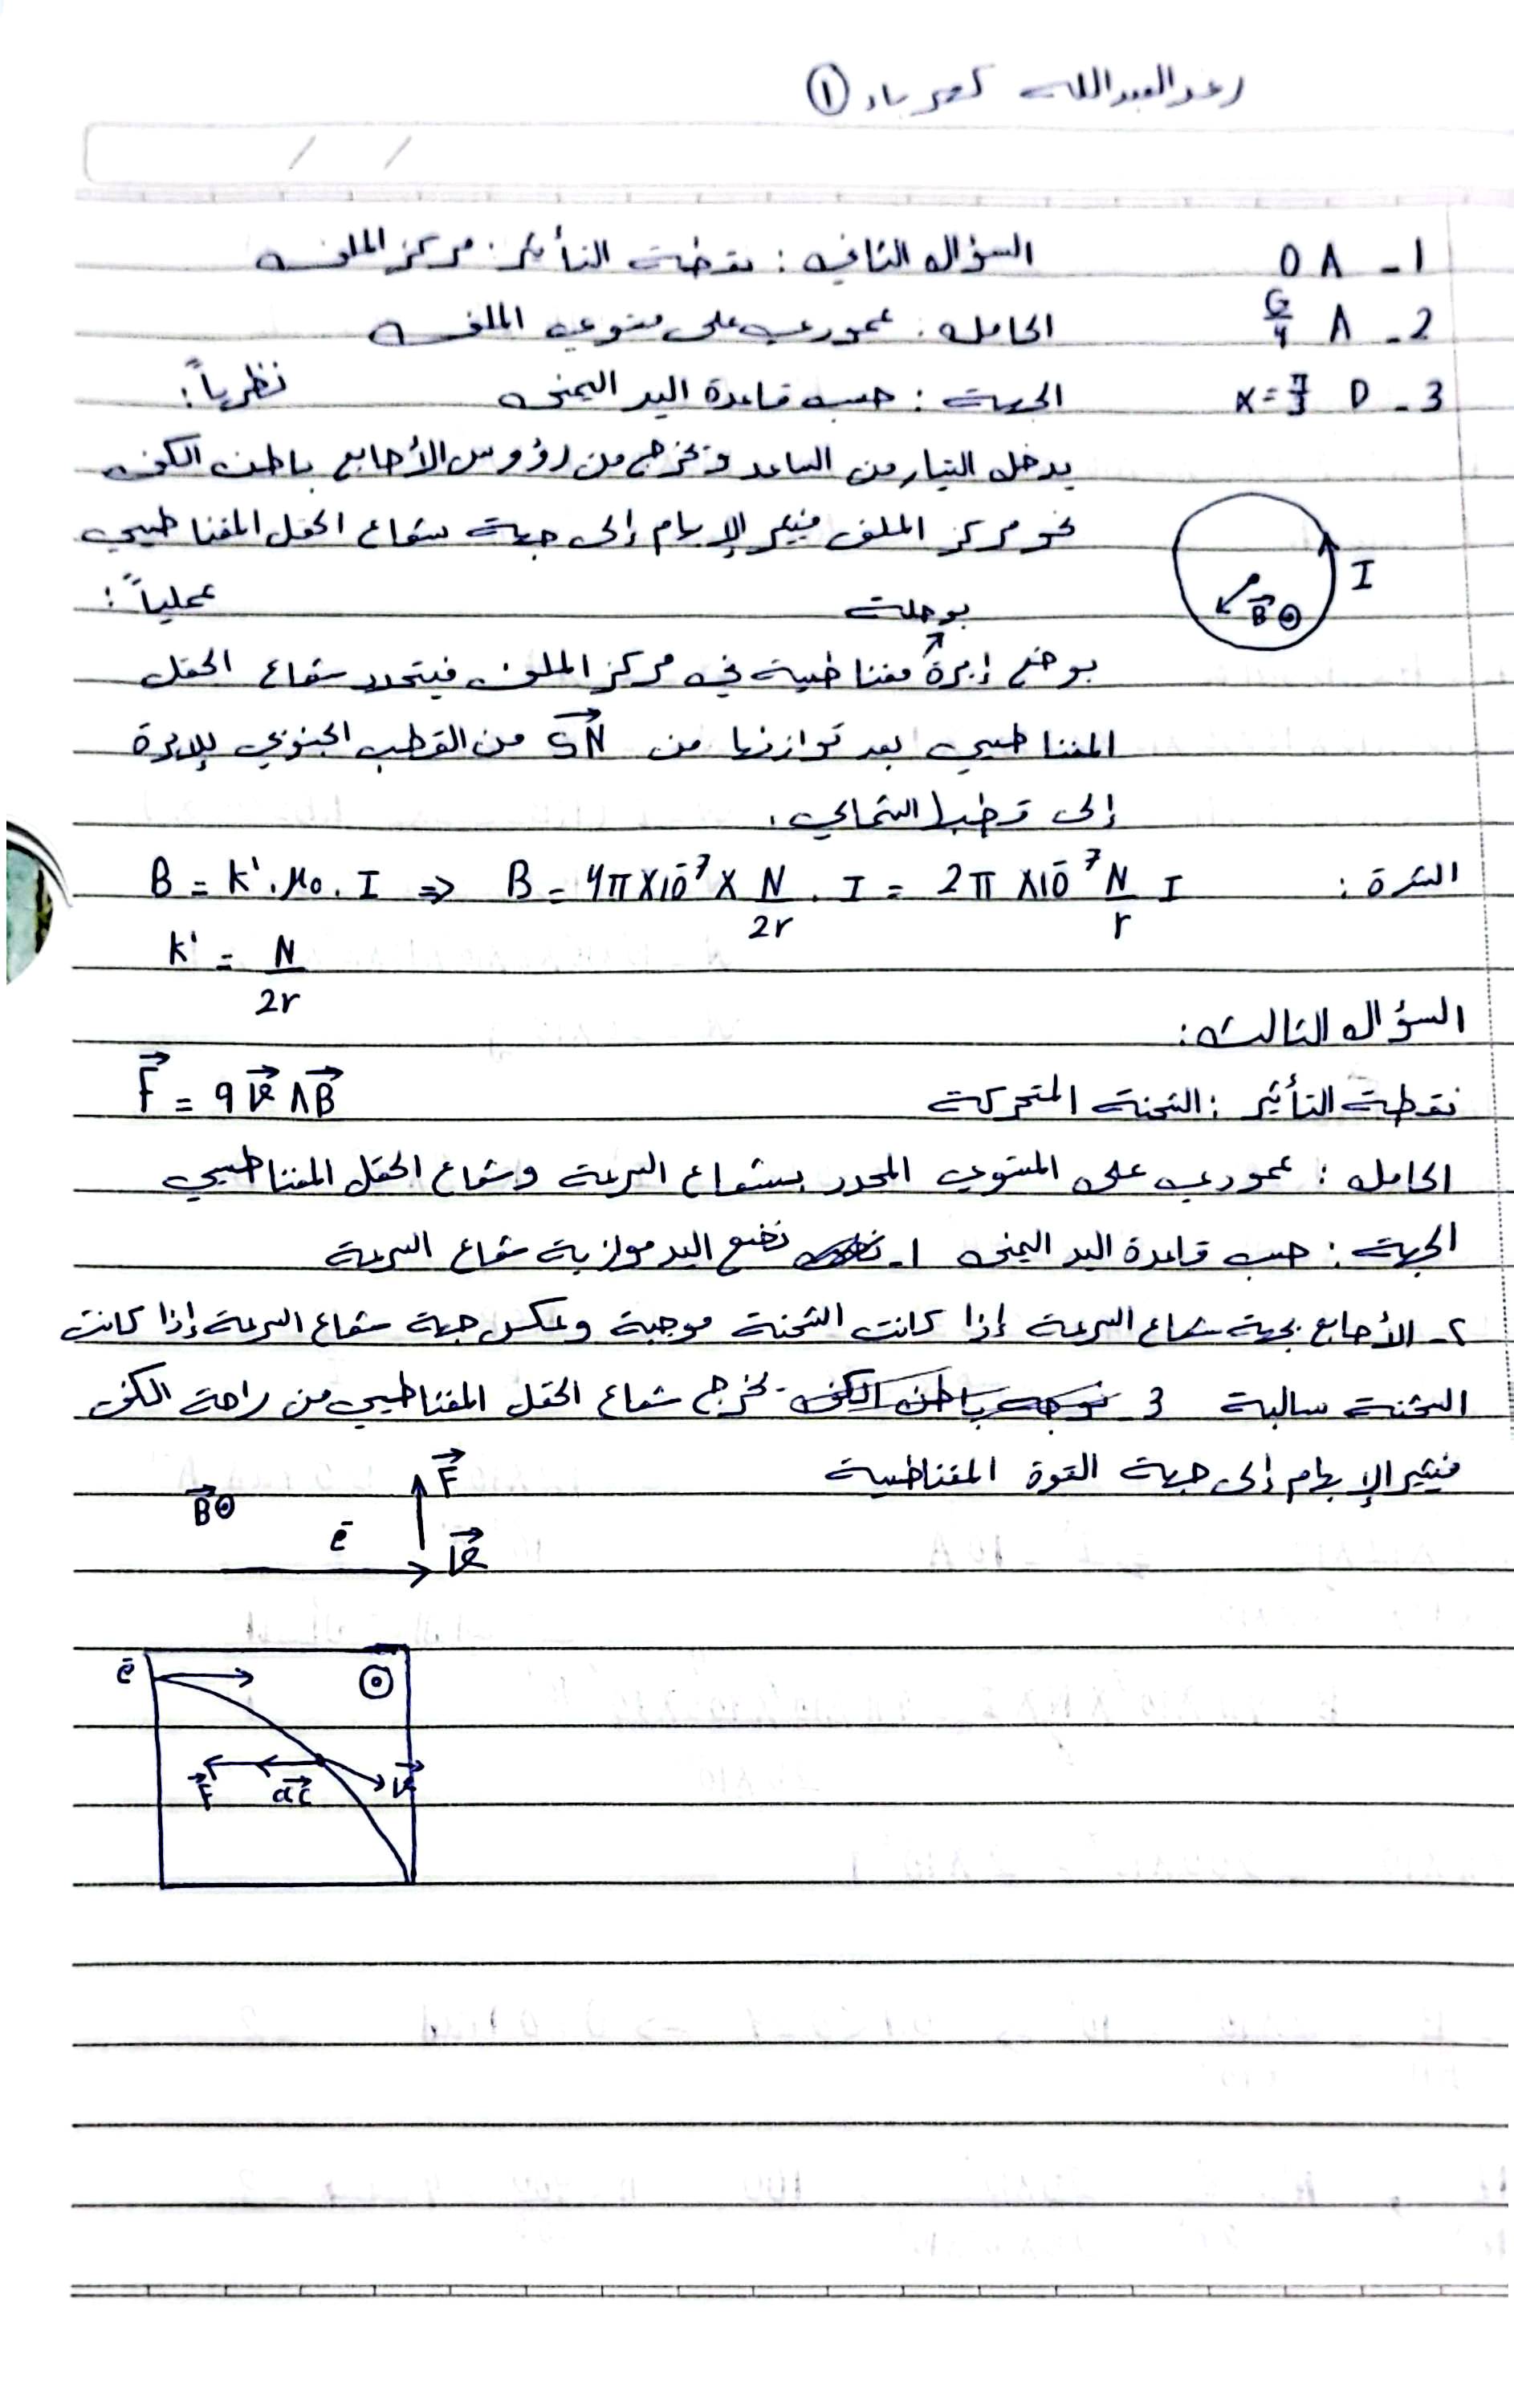 رعد العبدالله كهرباء ①
1 - A 0
السؤال الثاني : نقطة التأثير : مركز الملف
2 - A G/4
الحامل : عمودي على مستوي الملف
3 - D x = π/3
الجهة : حسب قاعدة اليد اليمنى نظرياً :
يدخل التيار من الساعد و يخرج من رؤوس الأصابع باطن الكف
نحو مركز الملف فيشير الإبهام إلى جهة شعاع الحقل المغناطيسي
I
B⃗ ⊙
بوصلة عملياً :
بوضع إبرة مغناطيسية في مركز الملف فيتحدد شعاع الحقل
المغناطيسي بعد توازنها من SN⃗ من القطب الجنوبي للإبرة
إلى قطبها الشمالي .
الشدة : B = k' . μ₀ . I ⇒ B = 4π×10⁻⁷ × N/2r . I = 2π ×10⁻⁷ N/r I
k' = N/2r
السؤال الثالث :
نقطة التأثير : الشحنة المتحركة F⃗ = q v⃗ Λ B⃗
الحامل : عمودي على المستوي المحدد بشعاع السرعة وشعاع الحقل المغناطيسي
الجهة : حسب قاعدة اليد اليمنى 1 - نضع اليد موازية شعاع السرعة
٢ - الأصابع بجهة شعاع السرعة إذا كانت الشحنة موجبة وعكس جهة شعاع السرعة إذا كانت
الشحنة سالبة 3 - يخرج شعاع الحقل المغناطيسي من راحة الكف
فيشير الإبهام إلى جهة القوة المغناطيسية
F⃗
B⃗ ⊙
e⁻ v⃗
e⁻ ⊙
F⃗ ac⃗ v⃗